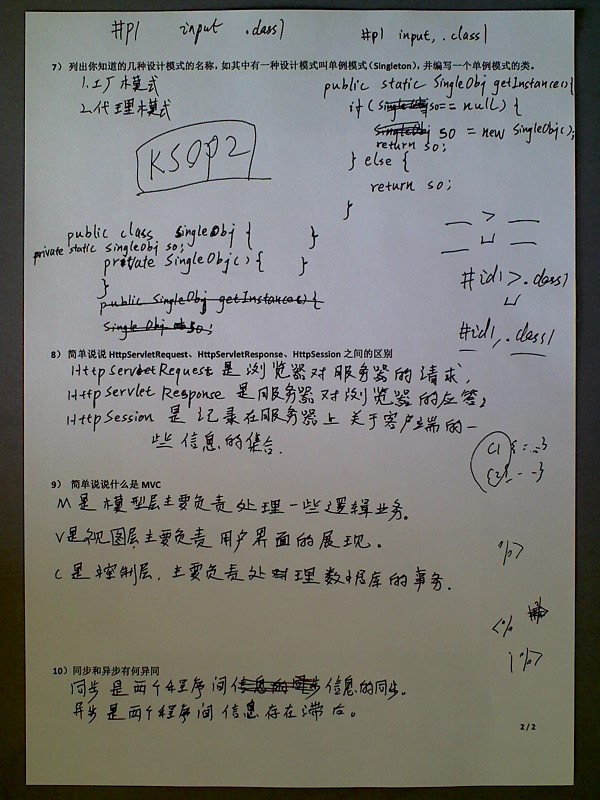 #p1 input .class1
#p1 input, .class1
7） 列出你知道的几种设计模式的名称，如其中有一种设计模式叫单例模式（Singleton），并编写一个单例模式的类。
1.工厂模式
2.代理模式
KSOP2
public static SingleObj getInstance(){
if (SingleObj so == null) {
SingleObj so = new SingleObj();
return so;
} else {
return so;
}
public class SingleObj { }
private static SingleObj so;
private SingleObj() { }
}
public SingleObj getInstance() {
SingleObj so;
>
#id1 > .class1
#id1, .class1
8） 简单说说 HttpServletRequest、HttpServletResponse、HttpSession 之间的区别
HttpServletRequest 是浏览器对服务器的请求，
HttpServlet Response 是服务器对浏览器的应答；
HttpSession 是记录在服务器上关于客户端的一
些信息的集合.
9） 简单说说什么是 MVC
M是模型层主要负责处理一些逻辑业务。
V是视图层，主要负责用户界面的展现。
C是控制层，主要负责处理数据库的事务.
%>
<%
%>
10）同步和异步有何异同
同步是两个程序间信息的同步。
异步是两个程序间信息存在滞后。
2 / 2